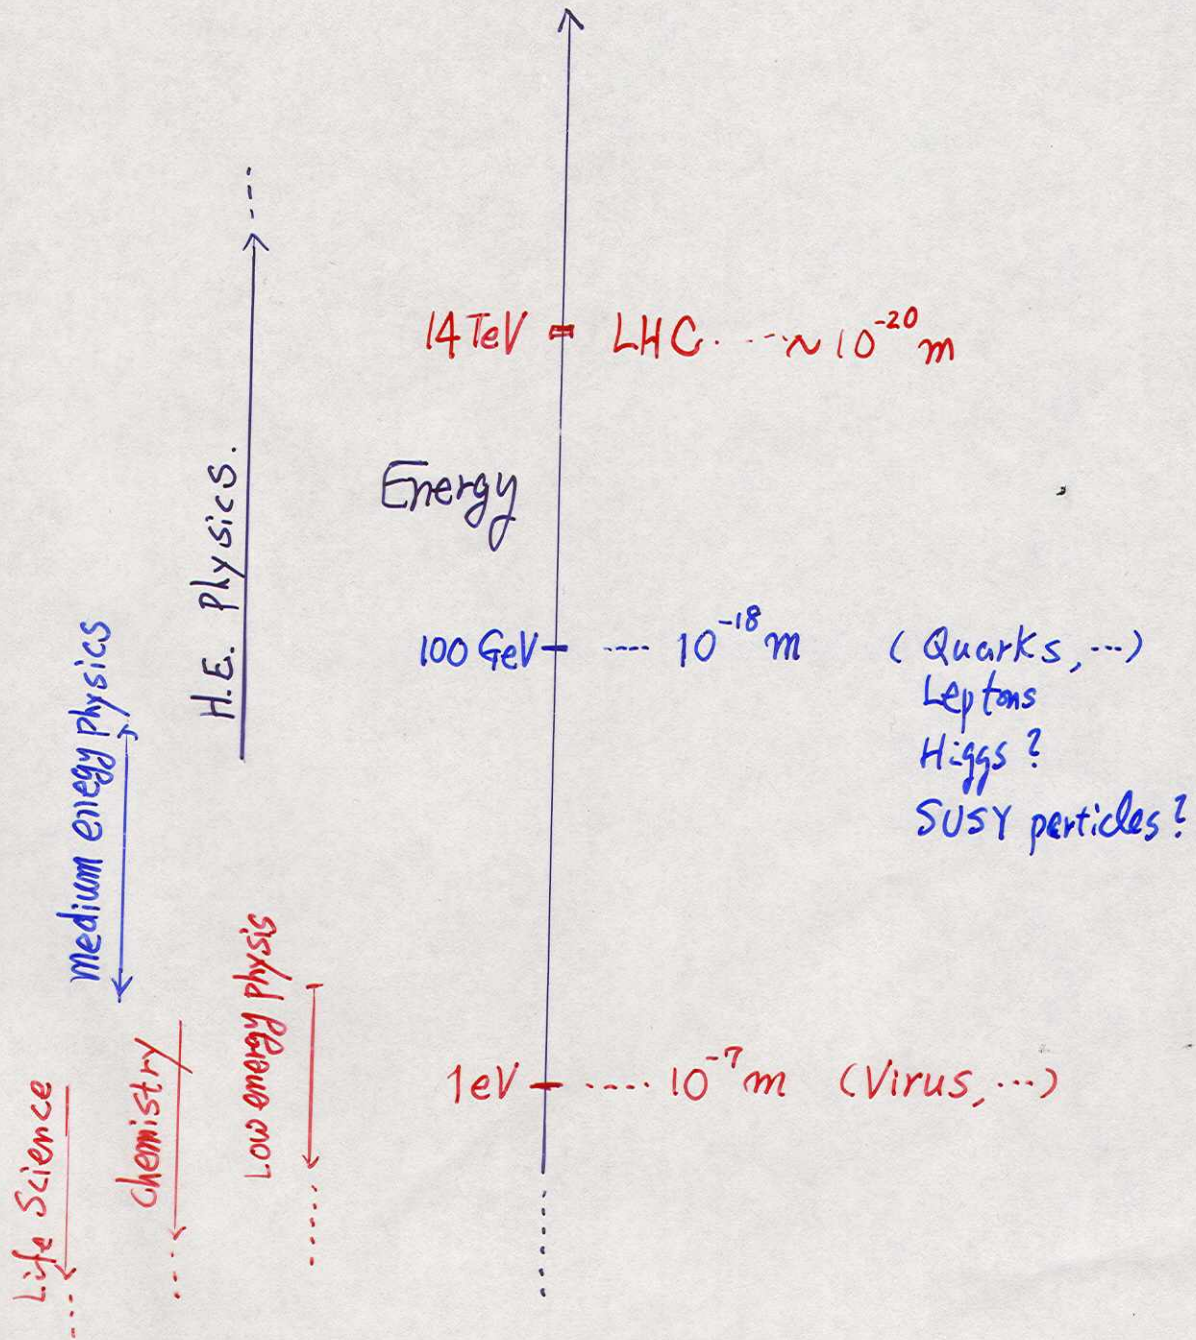 14 TeV LHC. ---- ~ 10^-20 m
Energy
H.E. Physics.
100 GeV ---- 10^-18 m (Quarks, ...)
Leptons
Higgs ?
SUSY particles ?
Medium enegy physics
Low energy physis
1eV ---- 10^-7 m (Virus, ...)
Chemistry
Life Science